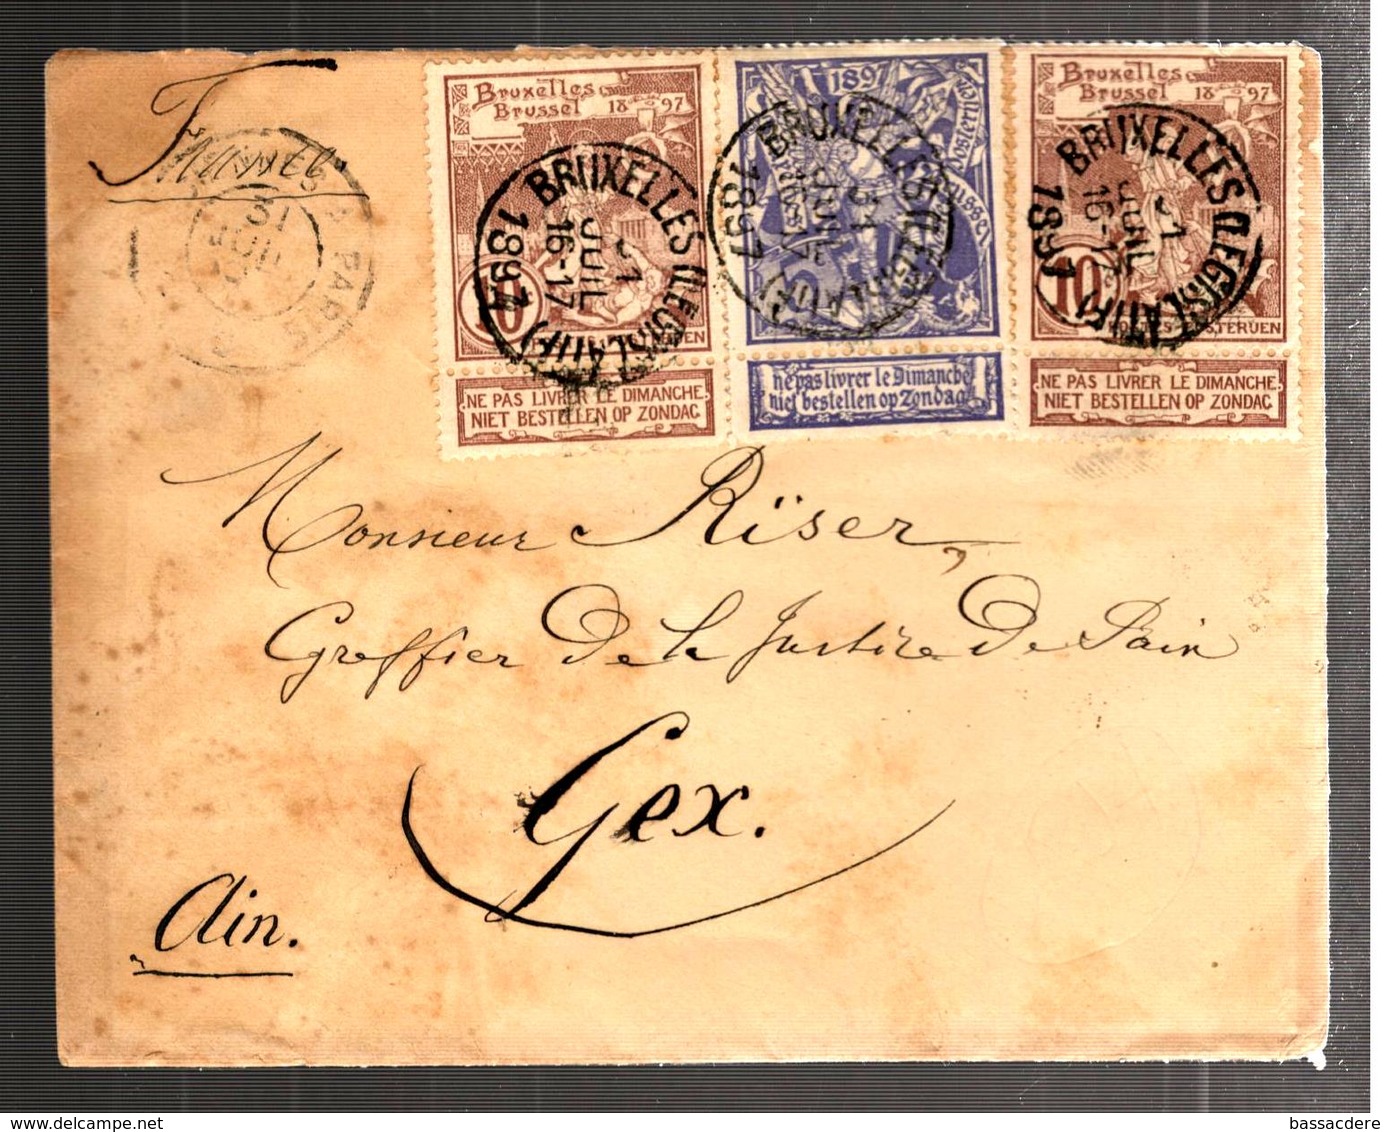 France
BRUXELLES À PARIS
31
JUIL
Bruxelles
Brussel
1897
10
NE PAS LIVRER LE DIMANCHE
NIET BESTELLEN OP ZONDAG
BRUXELLES (LEGISLATIF)
31
JUIL
16-17
1897
1897
ne pas livrer le Dimanche
niet bestellen op Zondag
BRUXELLES (LEGISLATIF)
31
JUIL
16-17
1897
Bruxelles
Brussel
1897
10
NE PAS LIVRER LE DIMANCHE
NIET BESTELLEN OP ZONDAG
BRUXELLES (LEGISLATIF)
31
JUIL
16-17
1897
Monsieur Rïser
Greffier De la Justice De Paix
Gex.
Ain.
bassacdere